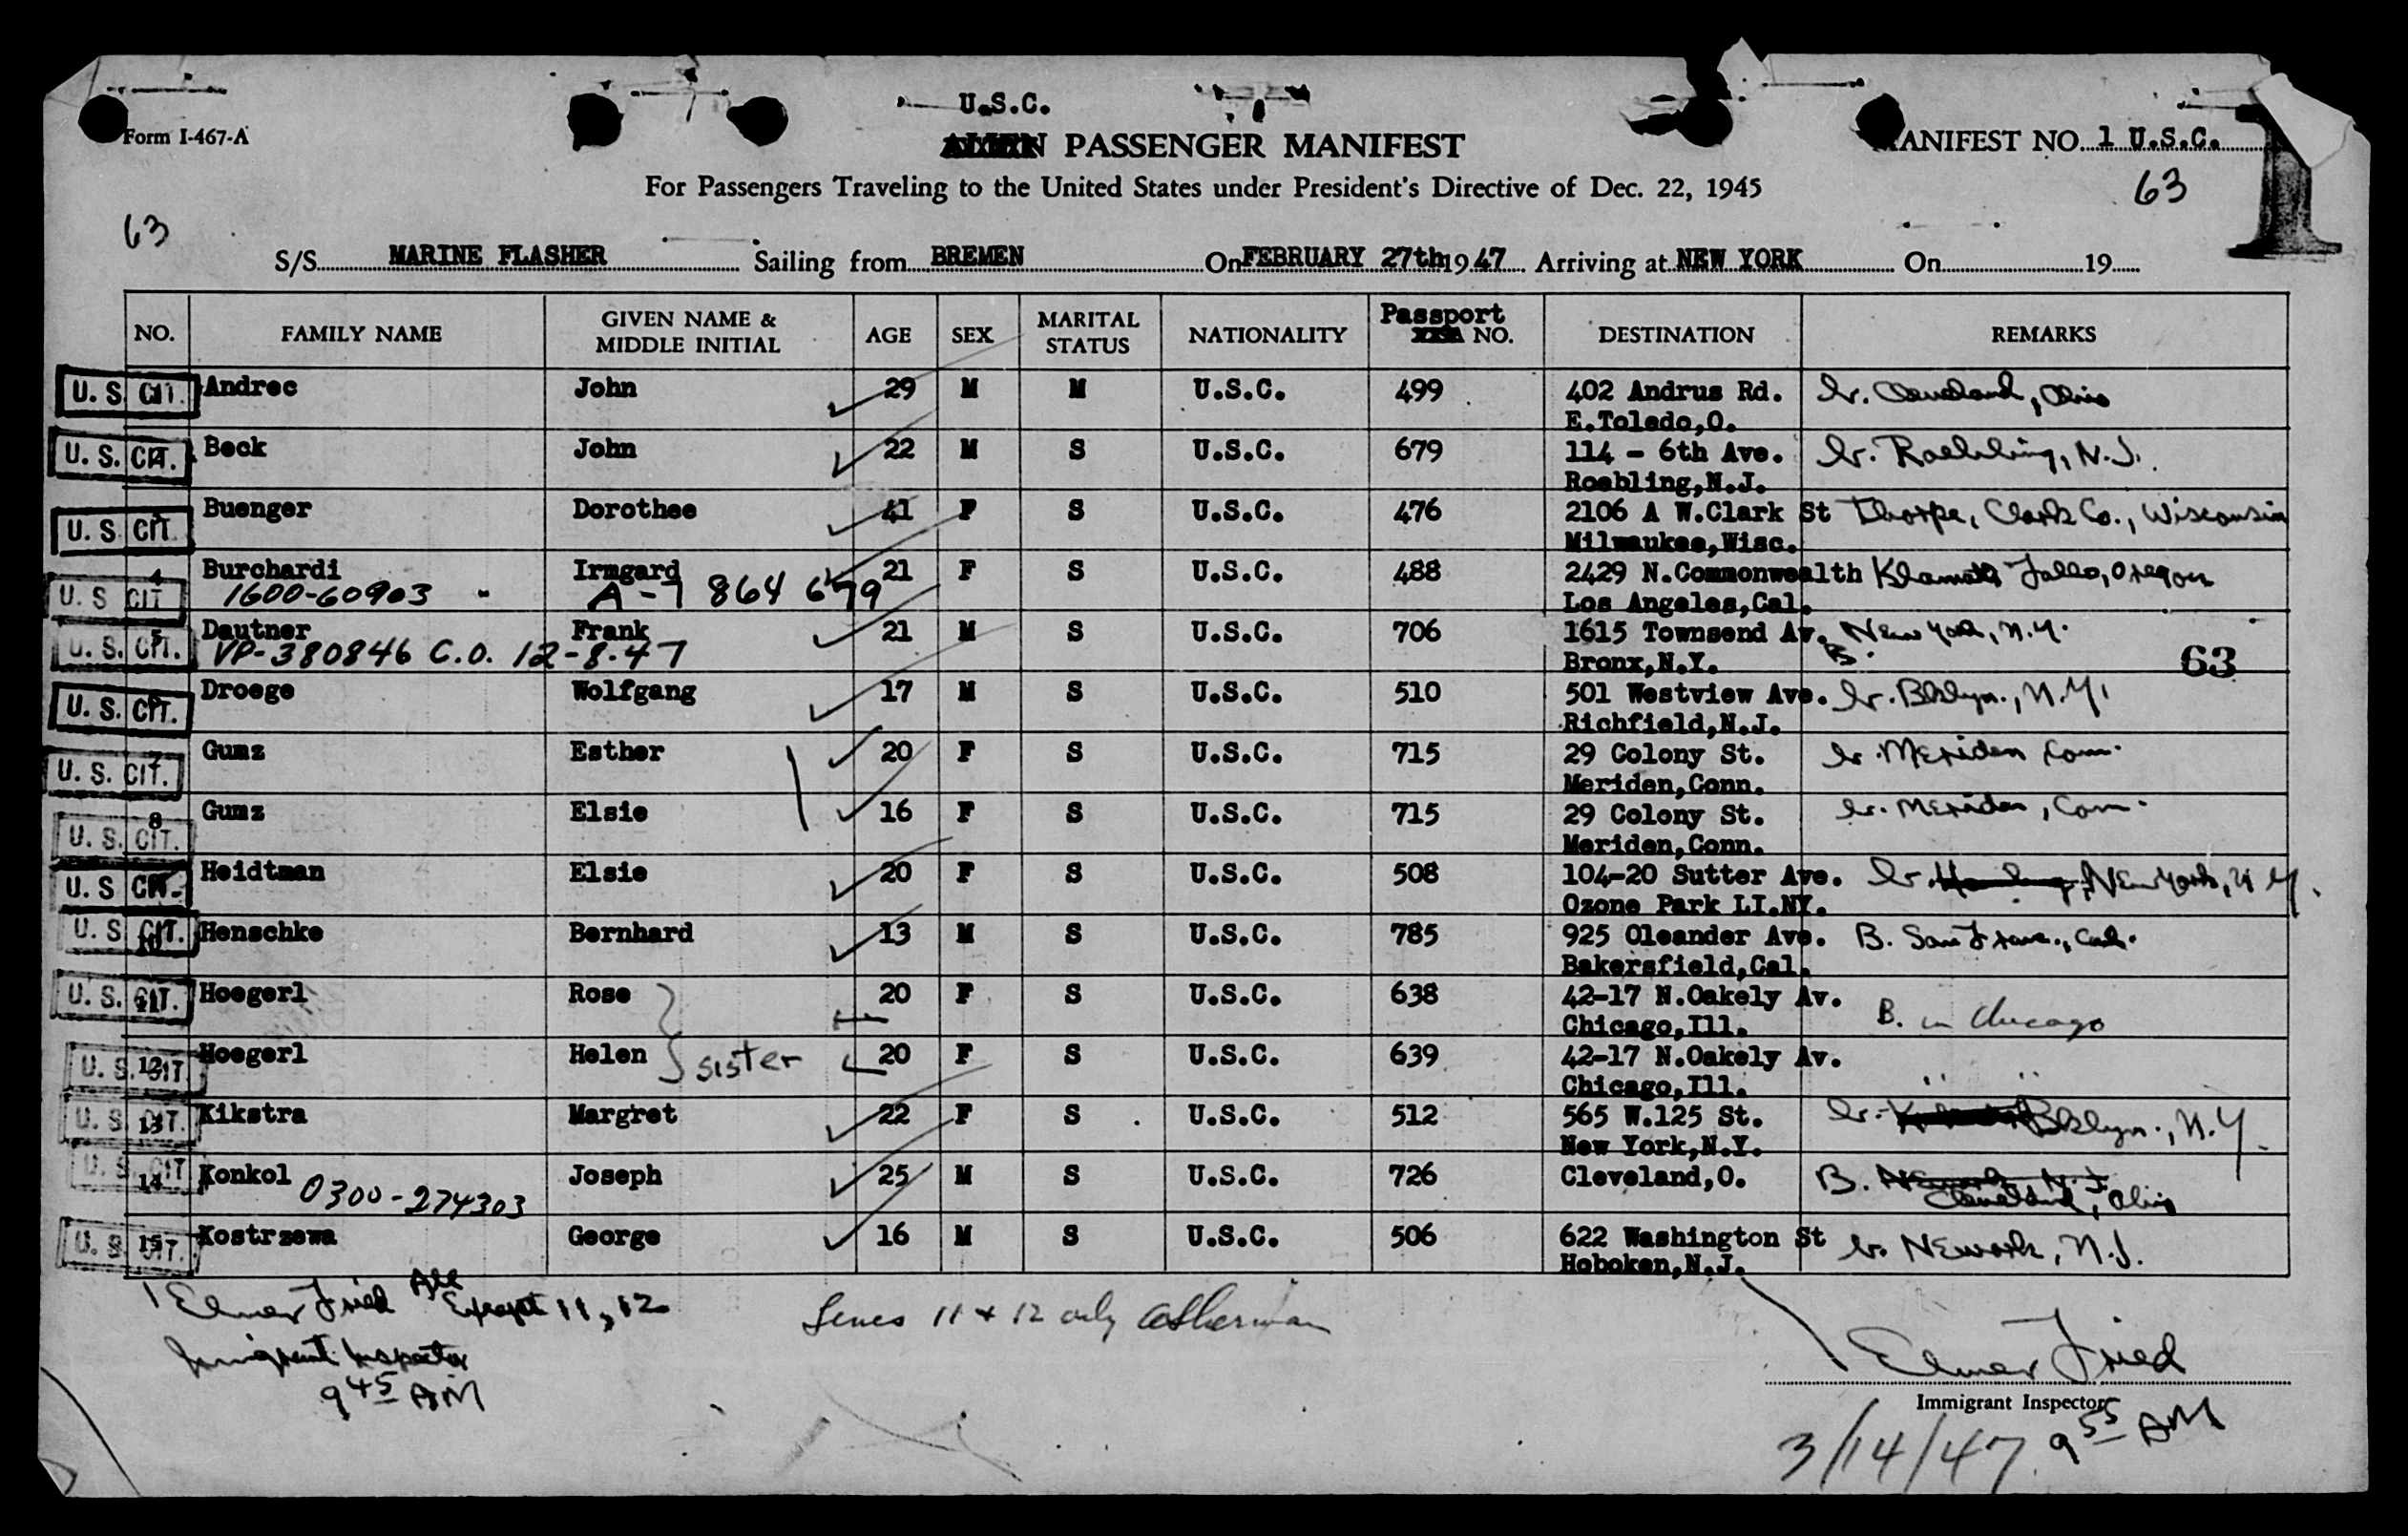 U.S.C.
Form I-467-A
PASSENGER MANIFEST
MANIFEST NO. 1 U.S.C.
For Passengers Traveling to the United States under President's Directive of Dec. 22, 1945
63
63
S/S MARINE FLASHER Sailing from BREMEN On FEBRUARY 27th 1947 Arriving at NEW YORK On 19
NO. FAMILY NAME GIVEN NAME & MIDDLE INITIAL AGE SEX MARITAL STATUS NATIONALITY Passport NO. DESTINATION REMARKS
U.S. CIT. Andrec John 29 M M U.S.C. 499 402 Andrus Rd. Cleveland, Ohio
E.Toledo,O.
U. S. CIT. Beck John 22 M S U.S.C. 679 114 - 6th Ave. Roebling, N.J.
Roebling,N.J.
U. S. CIT. Buenger Dorothee 41 F S U.S.C. 476 2106 A W.Clark St Thorpe, Clark Co., Wisconsin
Milwaukee,Wisc.
U. S. CIT 4 Burchardi Irmgard 21 F S U.S.C. 488 2429 N.Commonwealth Klamath Falls, Oregon
1600-60903 A-7 864 679 Los Angeles,Cal.
U. S. CIT. 5 Dautner Frank 21 M S U.S.C. 706 1615 Townsend Av. New York, N.Y.
VP-380846 C.O. 12-8-47 Bronx,N.Y. B. 63
U. S. CIT. Droege Wolfgang 17 M S U.S.C. 510 501 Westview Ave. Bklyn., N.Y.
Richfield,N.J.
U. S. CIT. 7 Gumz Esther 20 F S U.S.C. 715 29 Colony St. Meriden Conn.
Meriden,Conn.
U. S. CIT. 8 Gumz Elsie 16 F S U.S.C. 715 29 Colony St. Meriden, Conn.
Meriden,Conn.
U. S. CIT. Heidtman Elsie 20 F S U.S.C. 508 104-20 Sutter Ave. New York, N.Y.
Ozone Park LI.NY.
U. S. CIT. 10 Henschke Bernhard 13 M S U.S.C. 785 925 Oleander Ave. B. San Fran., Cal.
Bakersfield,Cal.
U. S. CIT. 11 Hoegerl Rose 20 F S U.S.C. 638 42-17 N.Oakely Av. B. in Chicago
Chicago,Ill.
U. S. CIT 12 Hoegerl Helen sister 20 F S U.S.C. 639 42-17 N.Oakely Av. " "
Chicago,Ill.
U. S. CIT. 13 Kikstra Margret 22 F S U.S.C. 512 565 W.125 St. Bklyn., N.Y.
New York,N.Y.
U. S. CIT 14 Konkol Joseph 25 M S U.S.C. 726 Cleveland,O. B. Newark N.J.
0300-274303 Cleveland, Ohio
U. S. CIT. 15 Kostrzewa George 16 M S U.S.C. 506 622 Washington St Newark, N.J.
Hoboken,N.J.
Elmer Fried All Except 11, 12
Lines 11 & 12 only
Immigrant Inspector
9 45 AM
Elmer Fried
Immigrant Inspector
3/14/47 9 55 AM